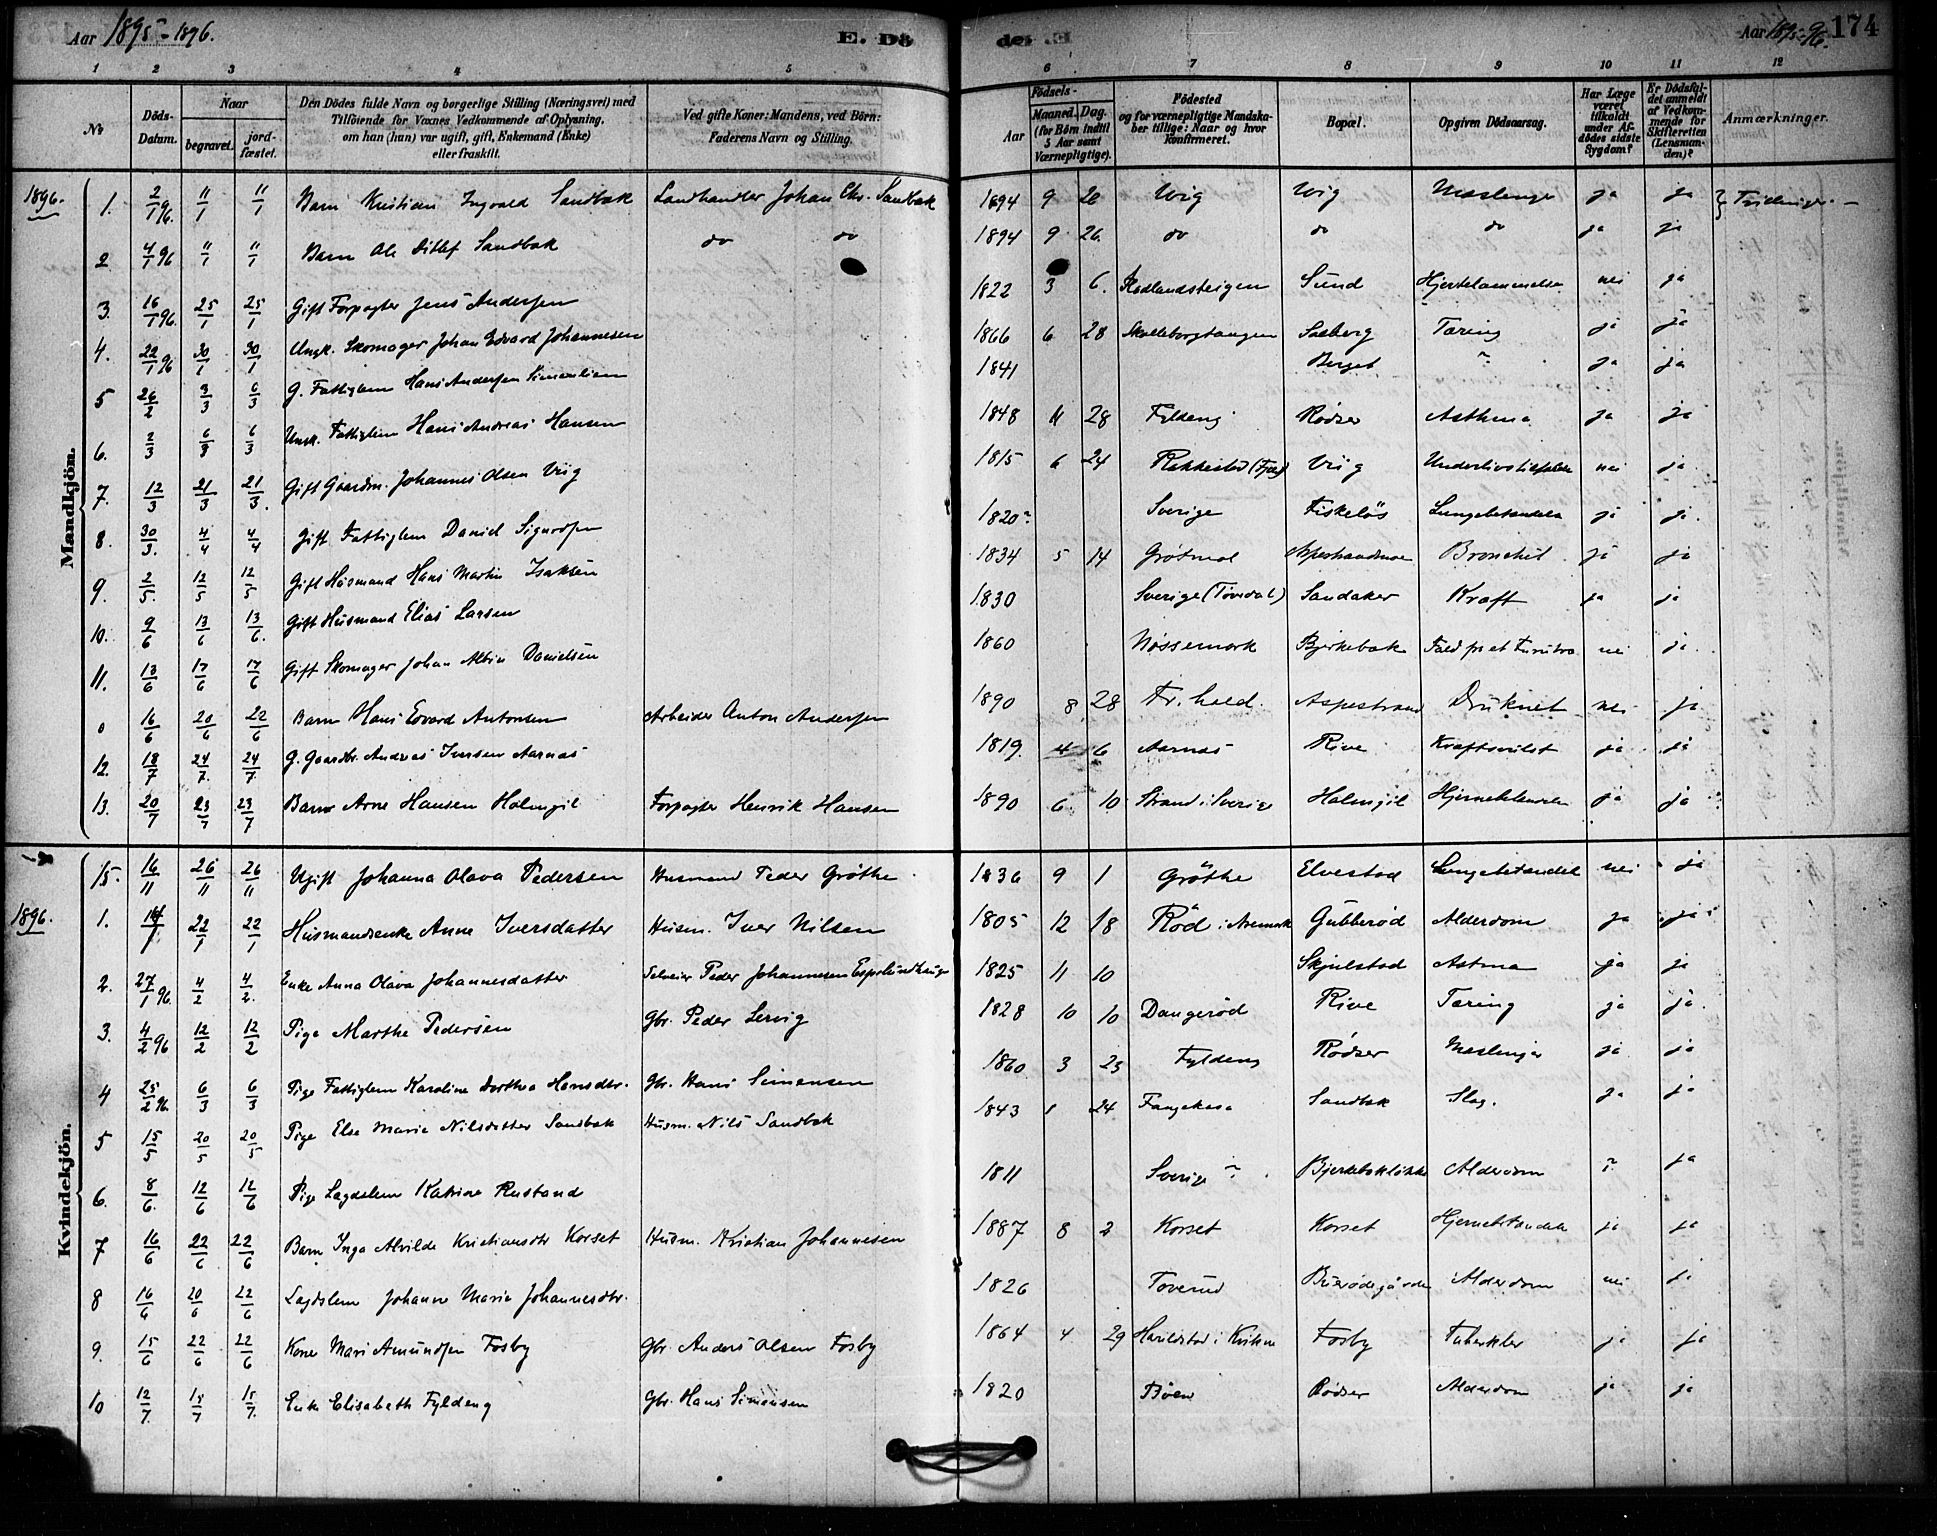 Aar 1895-1896.
E. Dö
de: E.
Aar 1895-96.
174
1 2 3 4 5 6 6 7 8 9 10 11 12
No
Döds-Datum.
Naar
begravet.
jord-fæstet.
Den Dödes fulde Navn og borgerlige Stilling (Næringsvei) med
Tilföiende for Voxnes Vedkommende af Oplysning,
om han (hun) var ugift, gift, Enkemand (Enke)
eller fraskilt.
Ved gifte Koner: Mandens, ved Börn:
Faderens Navn og Stilling.
Födsels-
Aar
Maaned. Dag.
(for Börn indtil
5 Aar samt
Værnepligtige).
Födested
og for værnepligtige Mandska-
ber tillige: Naar og hvor
konfirmeret.
Bopæl.
Opgiven Dödsaarsag.
Har Læge
været
tilkaldt
under Af-
dödes sidste
Sygdom?
Er Dödsfal-
det anmeldt
af Vedkom-
mende for
Skifteretten
(Lensman-
den)?
Anmærkninger.
Mandkjön.
1896.
1. 2/1 96. 11/1 11/1 Barn Kristian Ingvald Sandbak Landhandler Johan Chr. Sandbak 1894 9 26 Wig Wig Mæslinger ja ja } Tvillinger
2 4/1 96 11/1 11/1 Barn Ole Ditlef Sandbak do do 1894 9 26. do do do ja ja
3. 16/1 96. 25/1 25/1 Gift Forpagter Jens Andersen 1822 3 6. Sund Hjertelammelse nei ja
4. 22/1 96 30/1 30/1 Ungk. Skomager Johan Edvard Johannesen 1866 6 28 Skolleborgtangen Solberg Tæring ja ja
5 26/2 3/3 6/3 G. Fattiglem Hans Andersen Simenlien 1841 Berget ? ja ja
6. 2/3 6/3 6/3 Ungk. Fattiglem Hans Andreas Hansen 1848 11 28 Fyldeng Rödser Asthma ja ja
7. 12/3 21/3 21/3. Gift Gaardm. Johannes Olsen Viig 1815 6 24 Rakkestad Viig nei ja
8. 30/3. 4/4 4/4 Gift Fattiglem Daniel Sigurdsen 1820? Sverige Fiskelös Lungebetændelse ja ja.
9. 2/5. 12/5 12/5 Gift Husmand Hans Martin Isaksen 1834 5 14 Bronchit. ja ja
10. 9/6 13/6 13/6. Gift Husmand Elias Larsen 1830 Sverige (Tövedal) Sandaker Kræft ja ja
11. 13/6 17/6 17/6 Gift Skomager Johan Albin Danielsen 1860 Nössemark Bjerkebak nei ja.
0 16/6 20/6 22/6 Barn Hans Edvard Antonsen Arbeider Anton Andersen 1890 8 28 Fr.hald. Aspestrand Druknet nei ja
12. 18/7 24/7. 24/7 G. Gaardbr. Andreas Iversen Aarnæs 1819 4 6 Aarnæs Rive Kræftsvulst ja ja
13. 20/7 23/7 23/7 Barn Arne Hansen Holmgil Forpagter Henrik Hansen 1890 6. 10. Strand i Sverige Holmgil Hjernebetændelse ja ja
Kvindekjön.
15. 16/11 26/11 26/11 Ugift Johanna Olava Pedersen Husmand Peder Gröthe 1836 9 1 Gröthe Elvestad Lungebetændelse nei ja
1896.
1. 14/1 22/1 22/1 Husmandsenke Anne Iversdatter Husm. Iver Nilsen 1805 12 18 Röd i Aremark Gubberød Alderdom ja ja
2. 27/1 96. 4/2 4/2. Enke Anna Olava Johannesdatter Selveier Peder Johannesen Espelundhaugen 1825 11 10 Skjulstad Astma ja ja
3. 4/2 96 12/2 12/2 Pige Marthe Pedersen Gbr. Peder Lervig 1828 10 10 Dangeröd Rive Tæring ja ja.
4 25/2 96. 6/3 6/3 Pige Fattiglem Karoline Dorthea Hansdtr. Gbr. Hans Simensen 1860 3 23 Fyldeng Rödser Mæslinger ja ja
5 15/5 20/5 20/5 Pige Else Marie Nilsdatter Sandbak Husm. Nils Sandbak 1843 1 24 Fangekasa Sandbak Slag. ja ja
6. 8/6. 12/6 12/6 Pige Lægdslem Katrine Rustand 1811 Sverige ? Bjerkebaklökke Alderdom ? ja
7 16/6 22/6 22/6 Barn Inga Alvilde Kristiansdtr Korset Husm. Kristian Johannesen 1887 8 2 Korset Korset Hjernebetændelse ja ja
8 16/6 20/6 22/6 Lægdslem Johanne Maria Johannesdtr. 1826 Toverud Alderdom nei ja
9. 15/6 22/6 22/6 Kone Mari Amundsen Fosby Gbr. Anders Olsen Fosby 1864 4 29 Fosby Tuberkler ja ja
10 12/7. 15/7 15/7. Enke Elisabeth Fyldeng Gbr. Hans Simensen 1820 Böen Rödser Alderdom ja ja